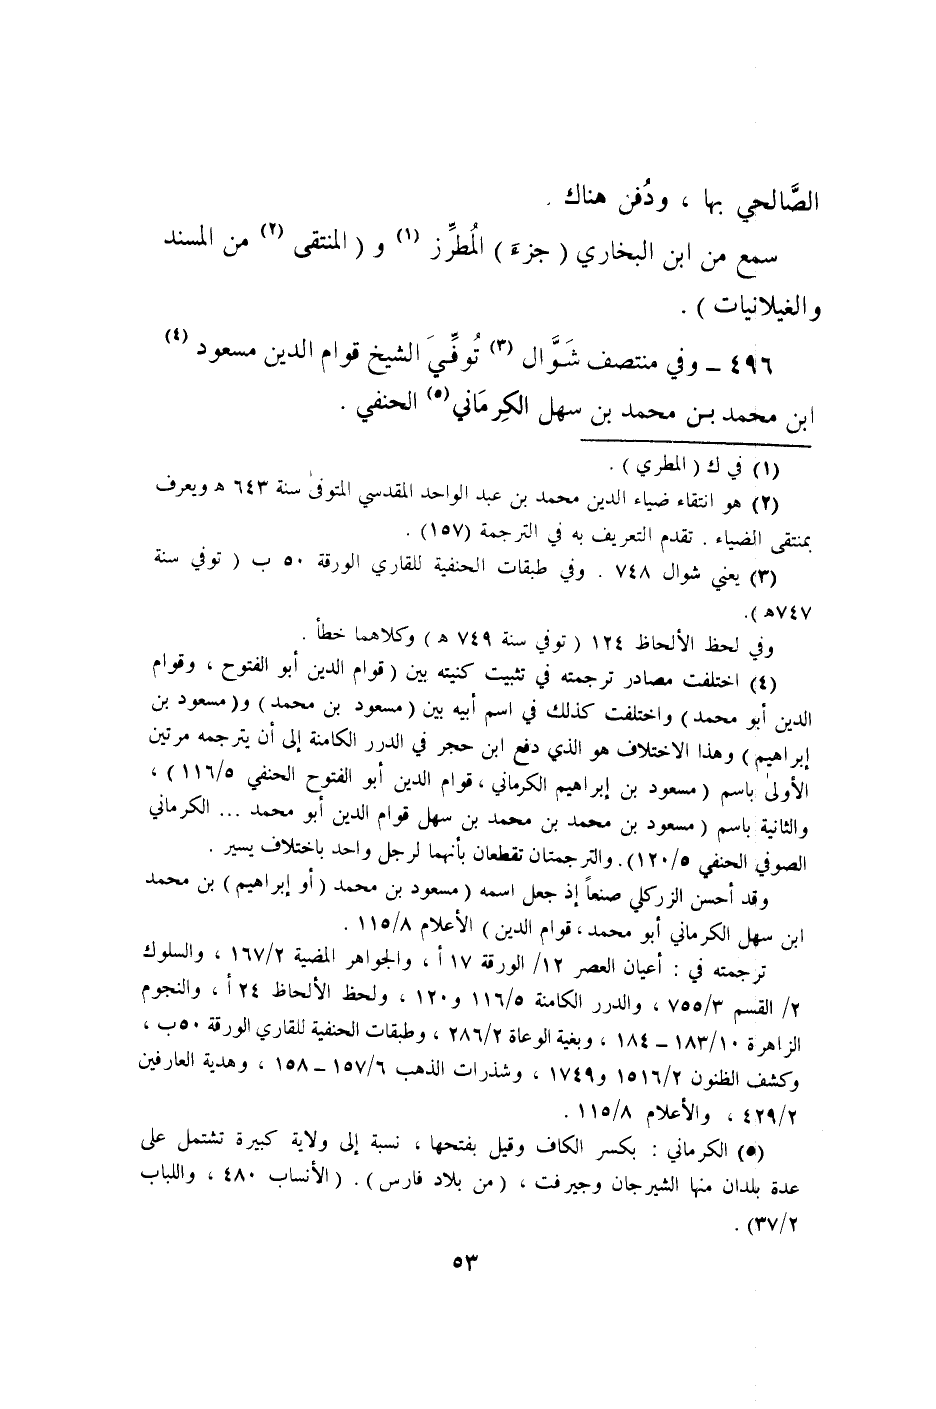 الصَّالحي بها ، ودُفن هناك .
سمع من ابن البخاري ( جزءَ ) المُطرِّز (١) و ( المنتقى (٢) من المسند
والغيلانيات ) .
٤٩٦ ــ وفي منتصف شَوَّال (٣) تُوفِّيَ الشيخ قوام الدين مسعود (٤)
ابن محمد بن محمد بن سهل الكِرمَاني (٥) الحنفي .
(١) في ك ( المطري ) .
(٢) هو انتقاء ضياء الدين محمد بن عبد الواحد المقدسي المتوفىٰ سنة ٦٤٣ هـ ويعرف
بمنتقى الضياء . تقدم التعريف به في الترجمة (١٥٧) .
(٣) يعني شوال ٧٤٨ . وفي طبقات الحنفية للقاري الورقة ٥٠ ب ( توفي سنة
٧٤٧هـ ).
وفي لحظ الألحاظ ١٢٤ ( توفي سنة ٧٤٩ هـ ) وكلاهما خطأ .
(٤) اختلفت مصادر ترجمته في تثبيت كنيته بين ( قوام الدين أبو الفتوح ، وقوام
الدين أبو محمد ) واختلفت كذلك في اسم أبيه بين ( مسعود بن محمد ) و( مسعود بن
إبراهيم ) وهذا الاختلاف هو الذي دفع ابن حجر في الدرر الكامنة إلى أن يترجمه مرتين
الأولىٰ باسم ( مسعود بن إبراهيم الكرماني ، قوام الدين أبو الفتوح الحنفي ١١٦/٥ ) ،
والثانية باسم ( مسعود بن محمد بن محمد بن سهل قوام الدين أبو محمد ... الكرماني
الصوفي الحنفي ١٢٠/٥ ). والترجمتان تقطعان بأنهما لرجل واحد باختلاف يسير .
وقد أحسن الزركلي صنعاً إذ جعل اسمه ( مسعود بن محمد ( أو إبراهيم ) بن محمد
ابن سهل الكرماني أبو محمد ، قوام الدين ) الأعلام ١١٥/٨ .
ترجمته في : أعيان العصر ١٢/ الورقة ١٧ أ ، والجواهر المضية ١٦٧/٢ ، والسلوك
٢/ القسم ٧٥٥/٣ ، والدرر الكامنة ١١٦/٥ و١٢٠ ، ولحظ الألحاظ ٢٤ أ ، والنجوم
الزاهرة ١٨٣/١٠ ــ ١٨٤ ، وبغية الوعاة ٢٨٦/٢ ، وطبقات الحنفية للقاري الورقة ٥٠ب ،
وكشف الظنون ١٥١٦/٢ و١٧٤٩ ، وشذرات الذهب ١٥٧/٦ ــ ١٥٨ ، وهدية العارفين
٤٢٩/٢ ، والأعلام ١١٥/٨ .
(٥) الكرماني : بكسر الكاف وقيل بفتحها ، نسبة إلى ولاية كبيرة تشتمل على
عدة بلدان منها الشيرجان وجيرفت ، ( من بلاد فارس ) . ( الأنساب ٤٨٠ ، واللباب
٣٧/٢) .
٥٣